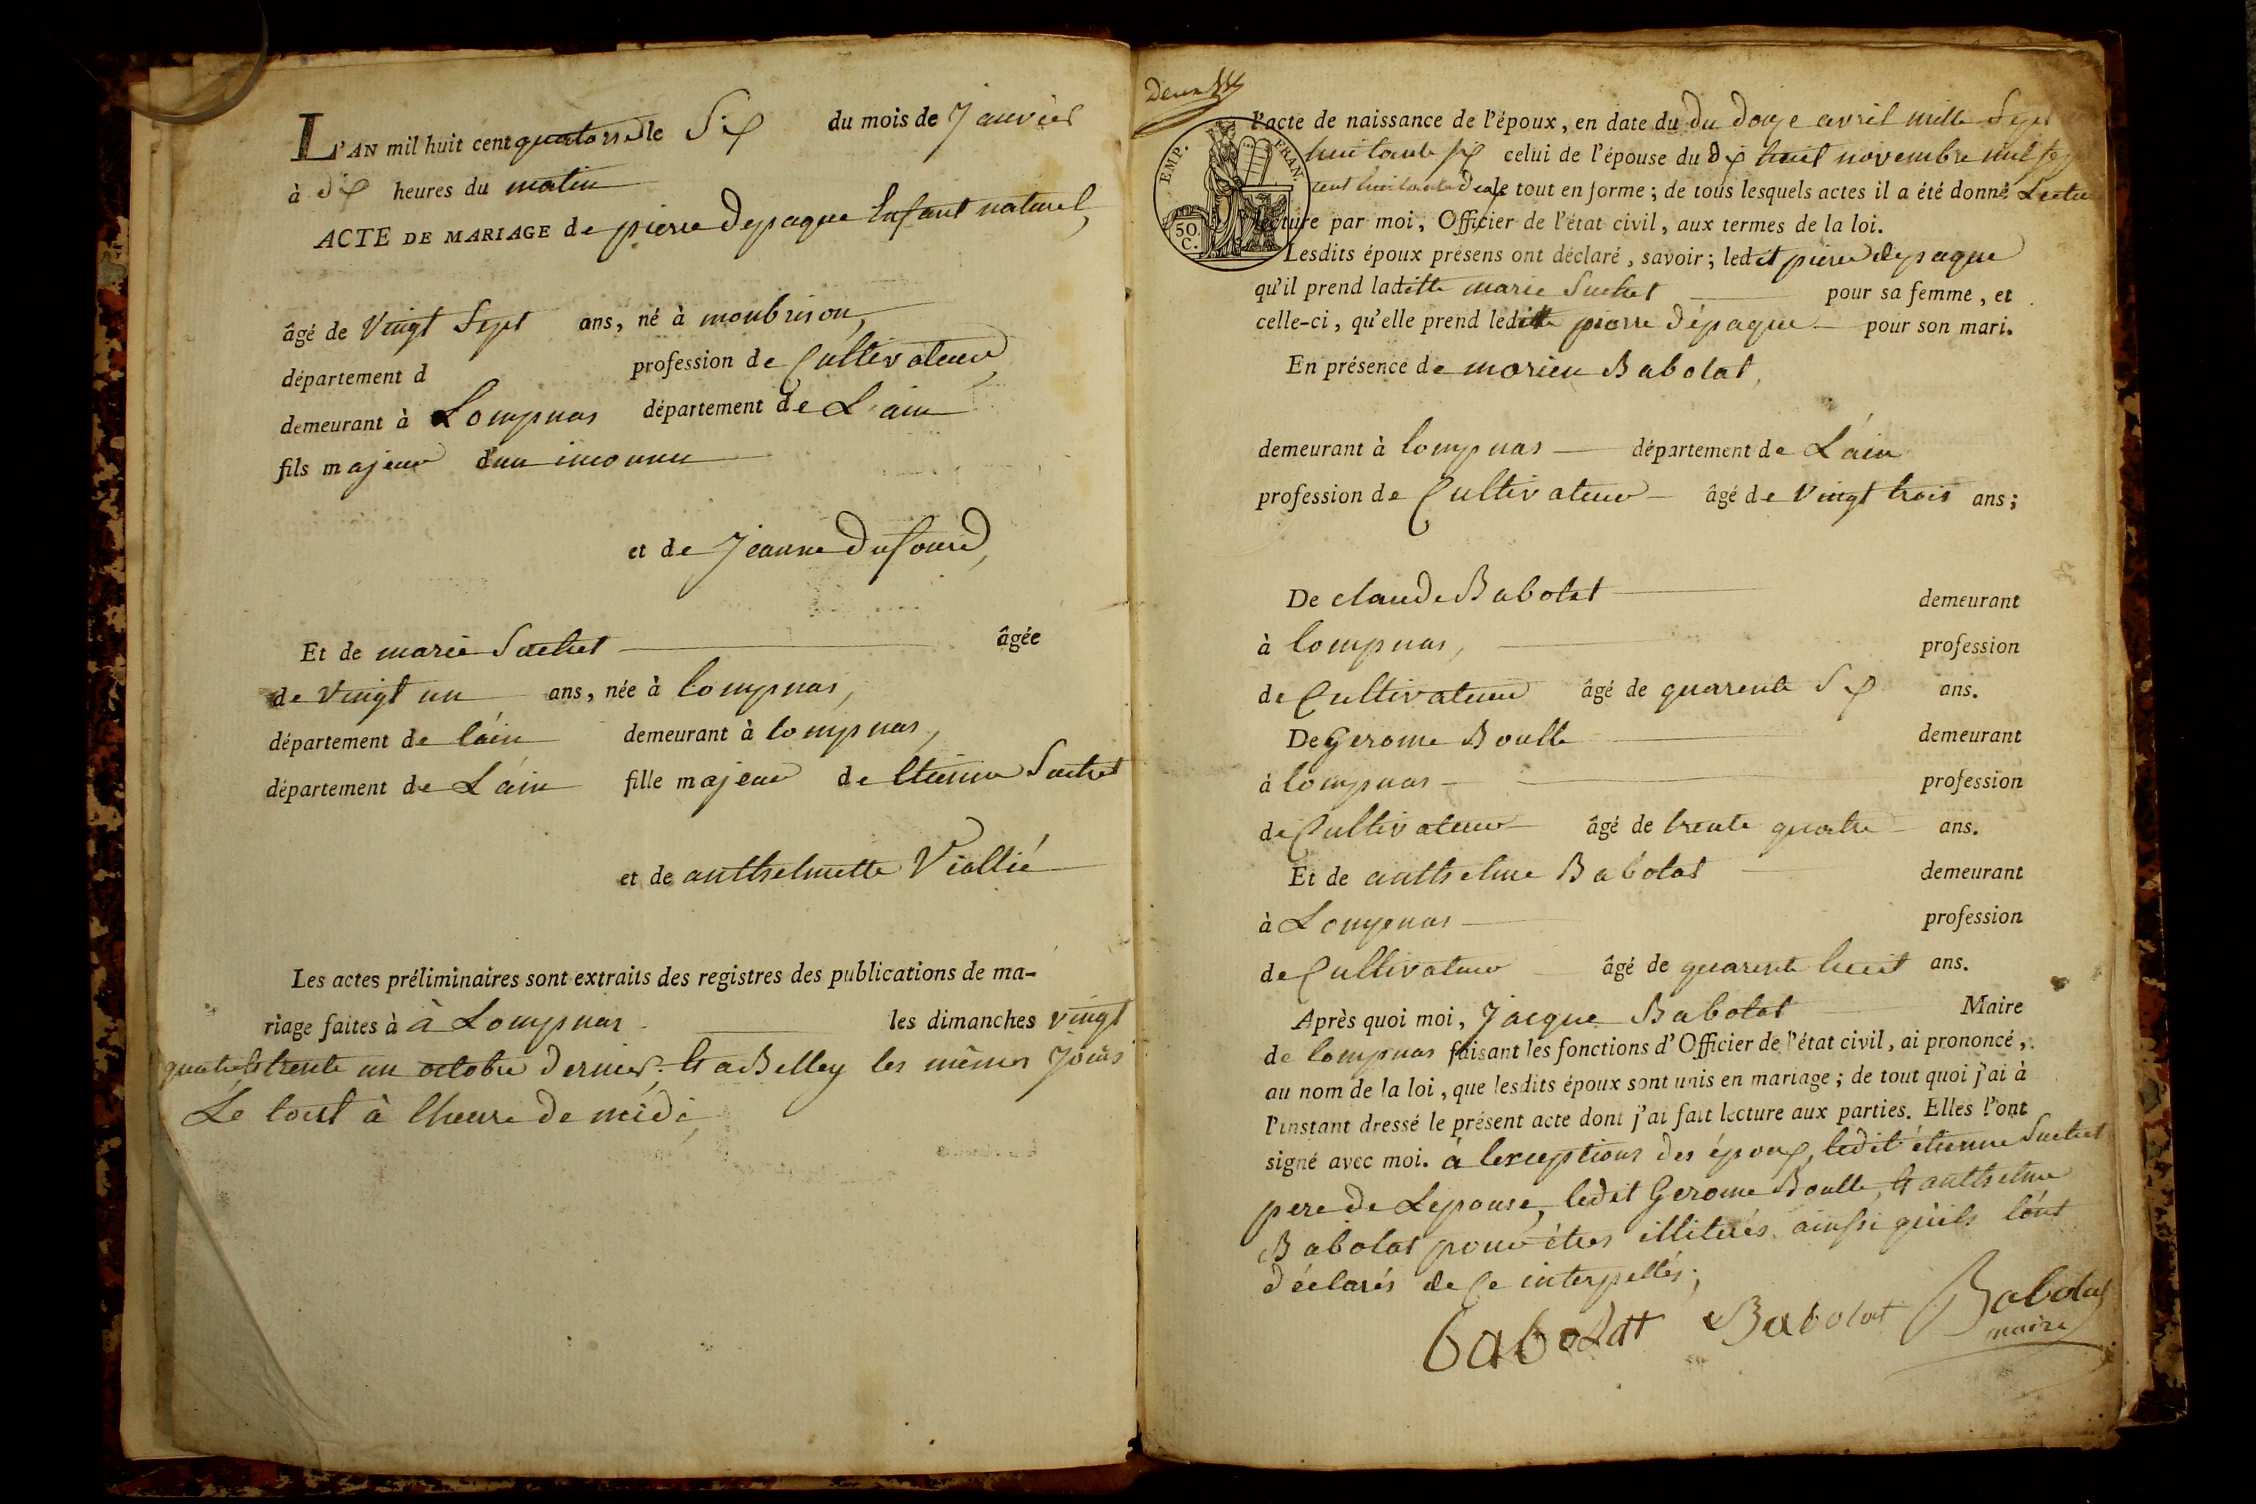 L'AN mil huit cent quatorse le Six du mois de Janvier
à dix heures du matin
ACTE DE MARIAGE de pierre Depaque Enfant naturel,
âgé de Vingt Sept ans, né à monbrison,
département d profession de Cultivateur,
demeurant à Lompnas département de L'ain
fils majeur d'un inconnu
et de Jeanne Dufour,
Et de marie Suchet âgée
de Vingt un ans, née à lompnas,
département de l'ain demeurant à lompnas,
département de L'ain fille majeur de Etienne Suchet
et de anthelmette Viallié
Les actes préliminaires sont extraits des registres des publications de ma-
riage faites à à Lompnas les dimanches vingt
quatre et trente un octobre dernier, Et a Belley les mêmes Jours
Le tout à l'heure de midi
Deux
EMP. FRAN.
50 C.
l'acte de naissance de l'époux, en date du du douze avril mille Sept
huitante six celui de l'épouse du dix huit novembre mil sept
cent huitante douze tout en forme; de tous lesquels actes il a été donné Lecture
lecture par moi, Officier de l'état civil, aux termes de la loi.
Lesdits époux présens ont déclaré, savoir; ledit pierre depaque
qu'il prend laditte marie Suchet pour sa femme, et
celle-ci, qu'elle prend ledit pierre dépaque pour son mari.
En présence de morieu Babolat,
demeurant à lompnas département de L'ain
profession de Cultivateur âgé de Vingt trois ans;
De claude Babolat demeurant
à lompnas, profession
de Cultivateur âgé de quarente Six ans.
De Gerome Boulle demeurant
à lompnas profession
de Cultivateur âgé de trente quatre ans.
Et de anthelme Babolat demeurant
à Lompnas profession
de Cultivateur âgé de quarente huit ans.
Après quoi moi, Jacque Babolat Maire
de lompnas faisant les fonctions d'Officier de l'état civil, ai prononcé,
au nom de la loi, que lesdits époux sont unis en mariage; de tout quoi j'ai à
l'instant dressé le présent acte dont j'ai fait lecture aux parties. Elles l'ont
signé avec moi. à l'exceptions des époux, ledit étienne Suchet
pere de Lepouse, ledit Gerome Boulle, Et anthelme
Babolat pour êtres illitérés ainssi qu'ils l'ont
déclarés de Ce interpellés;
babolat Babolat Babolat
maire